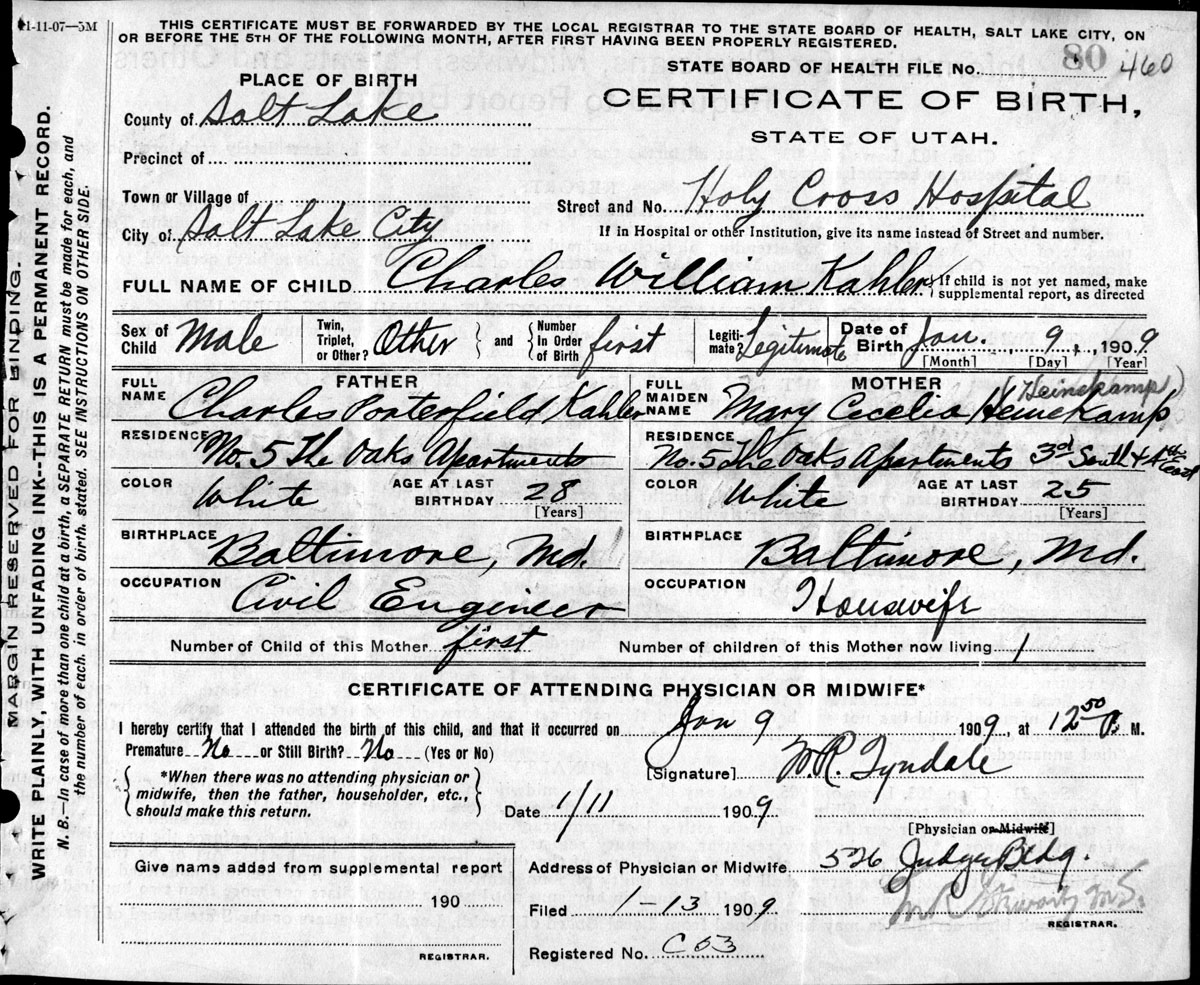 1-11-07—5M
THIS CERTIFICATE MUST BE FORWARDED BY THE LOCAL REGISTRAR TO THE STATE BOARD OF HEALTH, SALT LAKE CITY, ON
OR BEFORE THE 5TH OF THE FOLLOWING MONTH, AFTER FIRST HAVING BEEN PROPERLY REGISTERED.
MARGIN RESERVED FOR BINDING.
WRITE PLAINLY, WITH UNFADING INK--THIS IS A PERMANENT RECORD.
N. B.—In case of more than one child at a birth, a SEPARATE RETURN must be made for each, and
the number of each, in order of birth, stated. SEE INSTRUCTIONS ON OTHER SIDE.
80
STATE BOARD OF HEALTH FILE No. 460
PLACE OF BIRTH
CERTIFICATE OF BIRTH,
STATE OF UTAH.
County of Salt Lake
Precinct of
Town or Village of
Street and No. Holy Cross Hospital
City of Salt Lake City
If in Hospital or other Institution, give its name instead of Street and number.
FULL NAME OF CHILD Charles William Kahler { If child is not yet named, make
supplemental report, as directed
Sex of Child Male
Twin, Triplet, or Other? Other } and { Number In Order of Birth first
Legiti-mate? Legitimate
Date of Birth Jan. 9, 1909
[Month] [Day] [Year]
FATHER
FULL NAME Charles Porterfield Kahler
RESIDENCE No. 5 The Oaks Apartments
COLOR White AGE AT LAST BIRTHDAY 28
[Years]
BIRTHPLACE Baltimore, Md.
OCCUPATION Civil Engineer
MOTHER (Heinekamp)
FULL MAIDEN NAME Mary Cecelia Heinekamp
RESIDENCE No. 5 The Oaks Apartments 3rd South & 4th East
COLOR White AGE AT LAST BIRTHDAY 25
[Years]
BIRTHPLACE Baltimore, Md.
OCCUPATION Houswife
Number of Child of this Mother first Number of children of this Mother now living 1
CERTIFICATE OF ATTENDING PHYSICIAN OR MIDWIFE*
I hereby certify that I attended the birth of this child, and that it occurred on Jan 9 1909, at 12 50 M.
Premature No or Still Birth? No (Yes or No)
[Signature] W. R. Tyndale
{ *When there was no attending physician or
midwife, then the father, householder, etc.,
should make this return. }
Date 1/11 1909
[Physician or Midwife]
Give name added from supplemental report
190
REGISTRAR.
Address of Physician or Midwife 526 Judge Bldg.
Filed 1-13 1909
M R Stewart M.D.
REGISTRAR.
Registered No. C 53